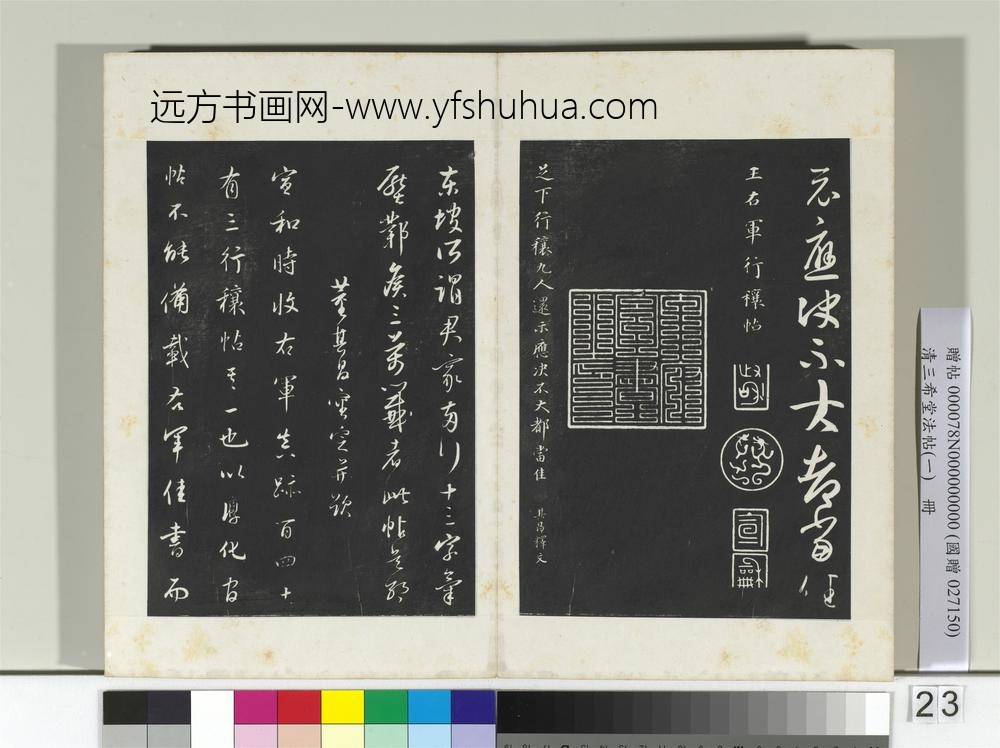 远方书画网-www.yfshuhua.com
示應決不大都當佳
王右軍行穰帖
政和
宣和
足下行穰九人還示應決不大都當佳 其昌釋文
東坡所謂君家兩行十三字氣
壓鄴侯三萬籤者此帖是耶
董其昌審定并題
宣和時收右軍真跡百四十
有三行穰帖其一也以淳化官
帖不能備載右軍佳書而
贈帖 000078N000000000 (國贈 027150)
清三希堂法帖(一) 冊
23